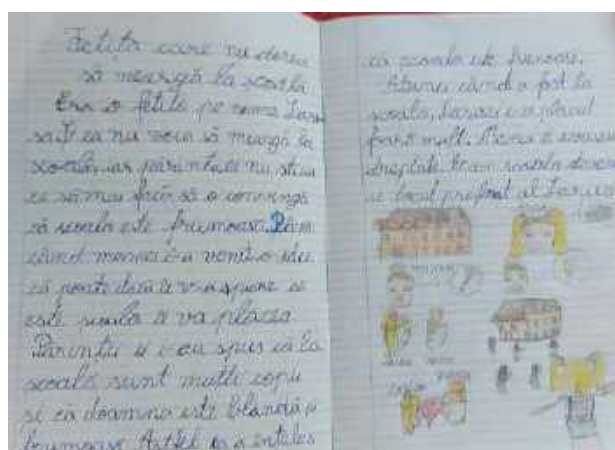 Fetița care nu dorea
să meargă la școală
Era o fetiță pe nume Lari
sa. Ea nu voia să meargă la
școală, iar părinții nu știau
ce să mai facă să o convingă
că școala este frumoasă. Până
când mamei i-a venit o idee
că poate dacă îi vor spune ce
este școala îi va plăcea
Părinții i-au spus că la
școală sunt mulți copii
și că doamna este blândă și
frumoasă. Astfel ea a înțeles
că școala este frumoasă.
Atunci când a fost la
școală, Larisei i-a plăcut
foarte mult. Mama a avut
dreptate. școala
locul preferat al Larisei